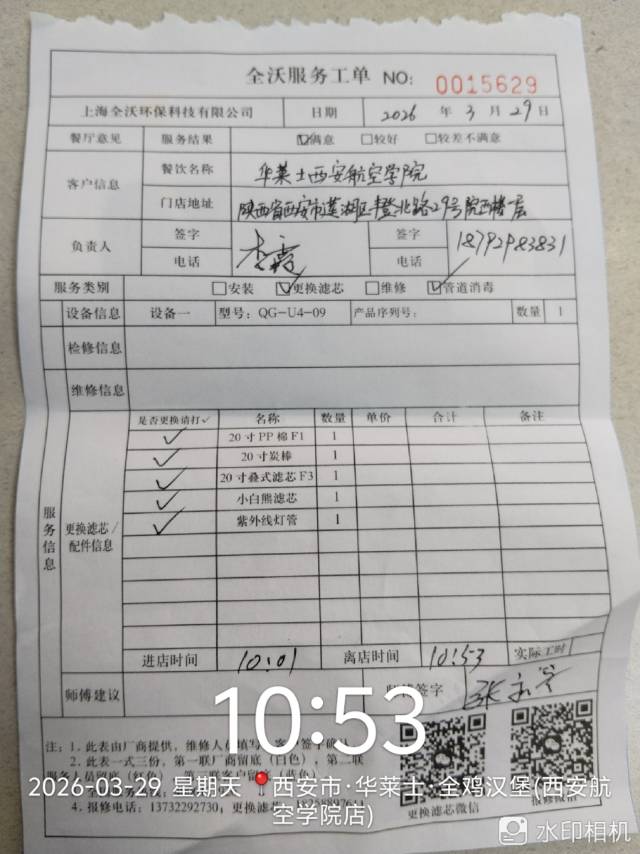 全沃服务工单 NO: 0015629
上海全沃环保科技有限公司 日期 2026 年 3 月 29 日
餐厅意见 服务结果 ☑满意 □较好 □较差不满意
客户信息 餐饮名称 华莱士西安航空学院
门店地址 陕西省西安市莲湖区丰登北路29号院西楼一层
负责人 签字 李霞 签字
电话 电话 18792983831
服务类别 □安装 ☑更换滤芯 □维修 ☑管道消毒
设备信息 设备一 型号：QG-U4-09 产品序列号： 数量 1
检修信息
维修信息
服务信息 更换滤芯/配件信息
是否更换请打✓ 名称 数量 单价 合计 备注
✓ 20寸PP棉F1 1
✓ 20寸炭棒 1
✓ 20寸叠式滤芯F3 1
✓ 小白熊滤芯 1
✓ 紫外线灯管 1
进店时间 10:01 离店时间 10:53 实际工时
师傅建议 签字
10:53
注：1．此表由厂商提供，维修人员填写
2．此表一式三份，第一联厂商留底（白色），第二联
2026-03-29 星期天 西安市·华莱士·全鸡汉堡(西安航
空学院店)
4．报修电话：13732292730；更换滤芯
更换滤芯微信 报修微信
水印相机